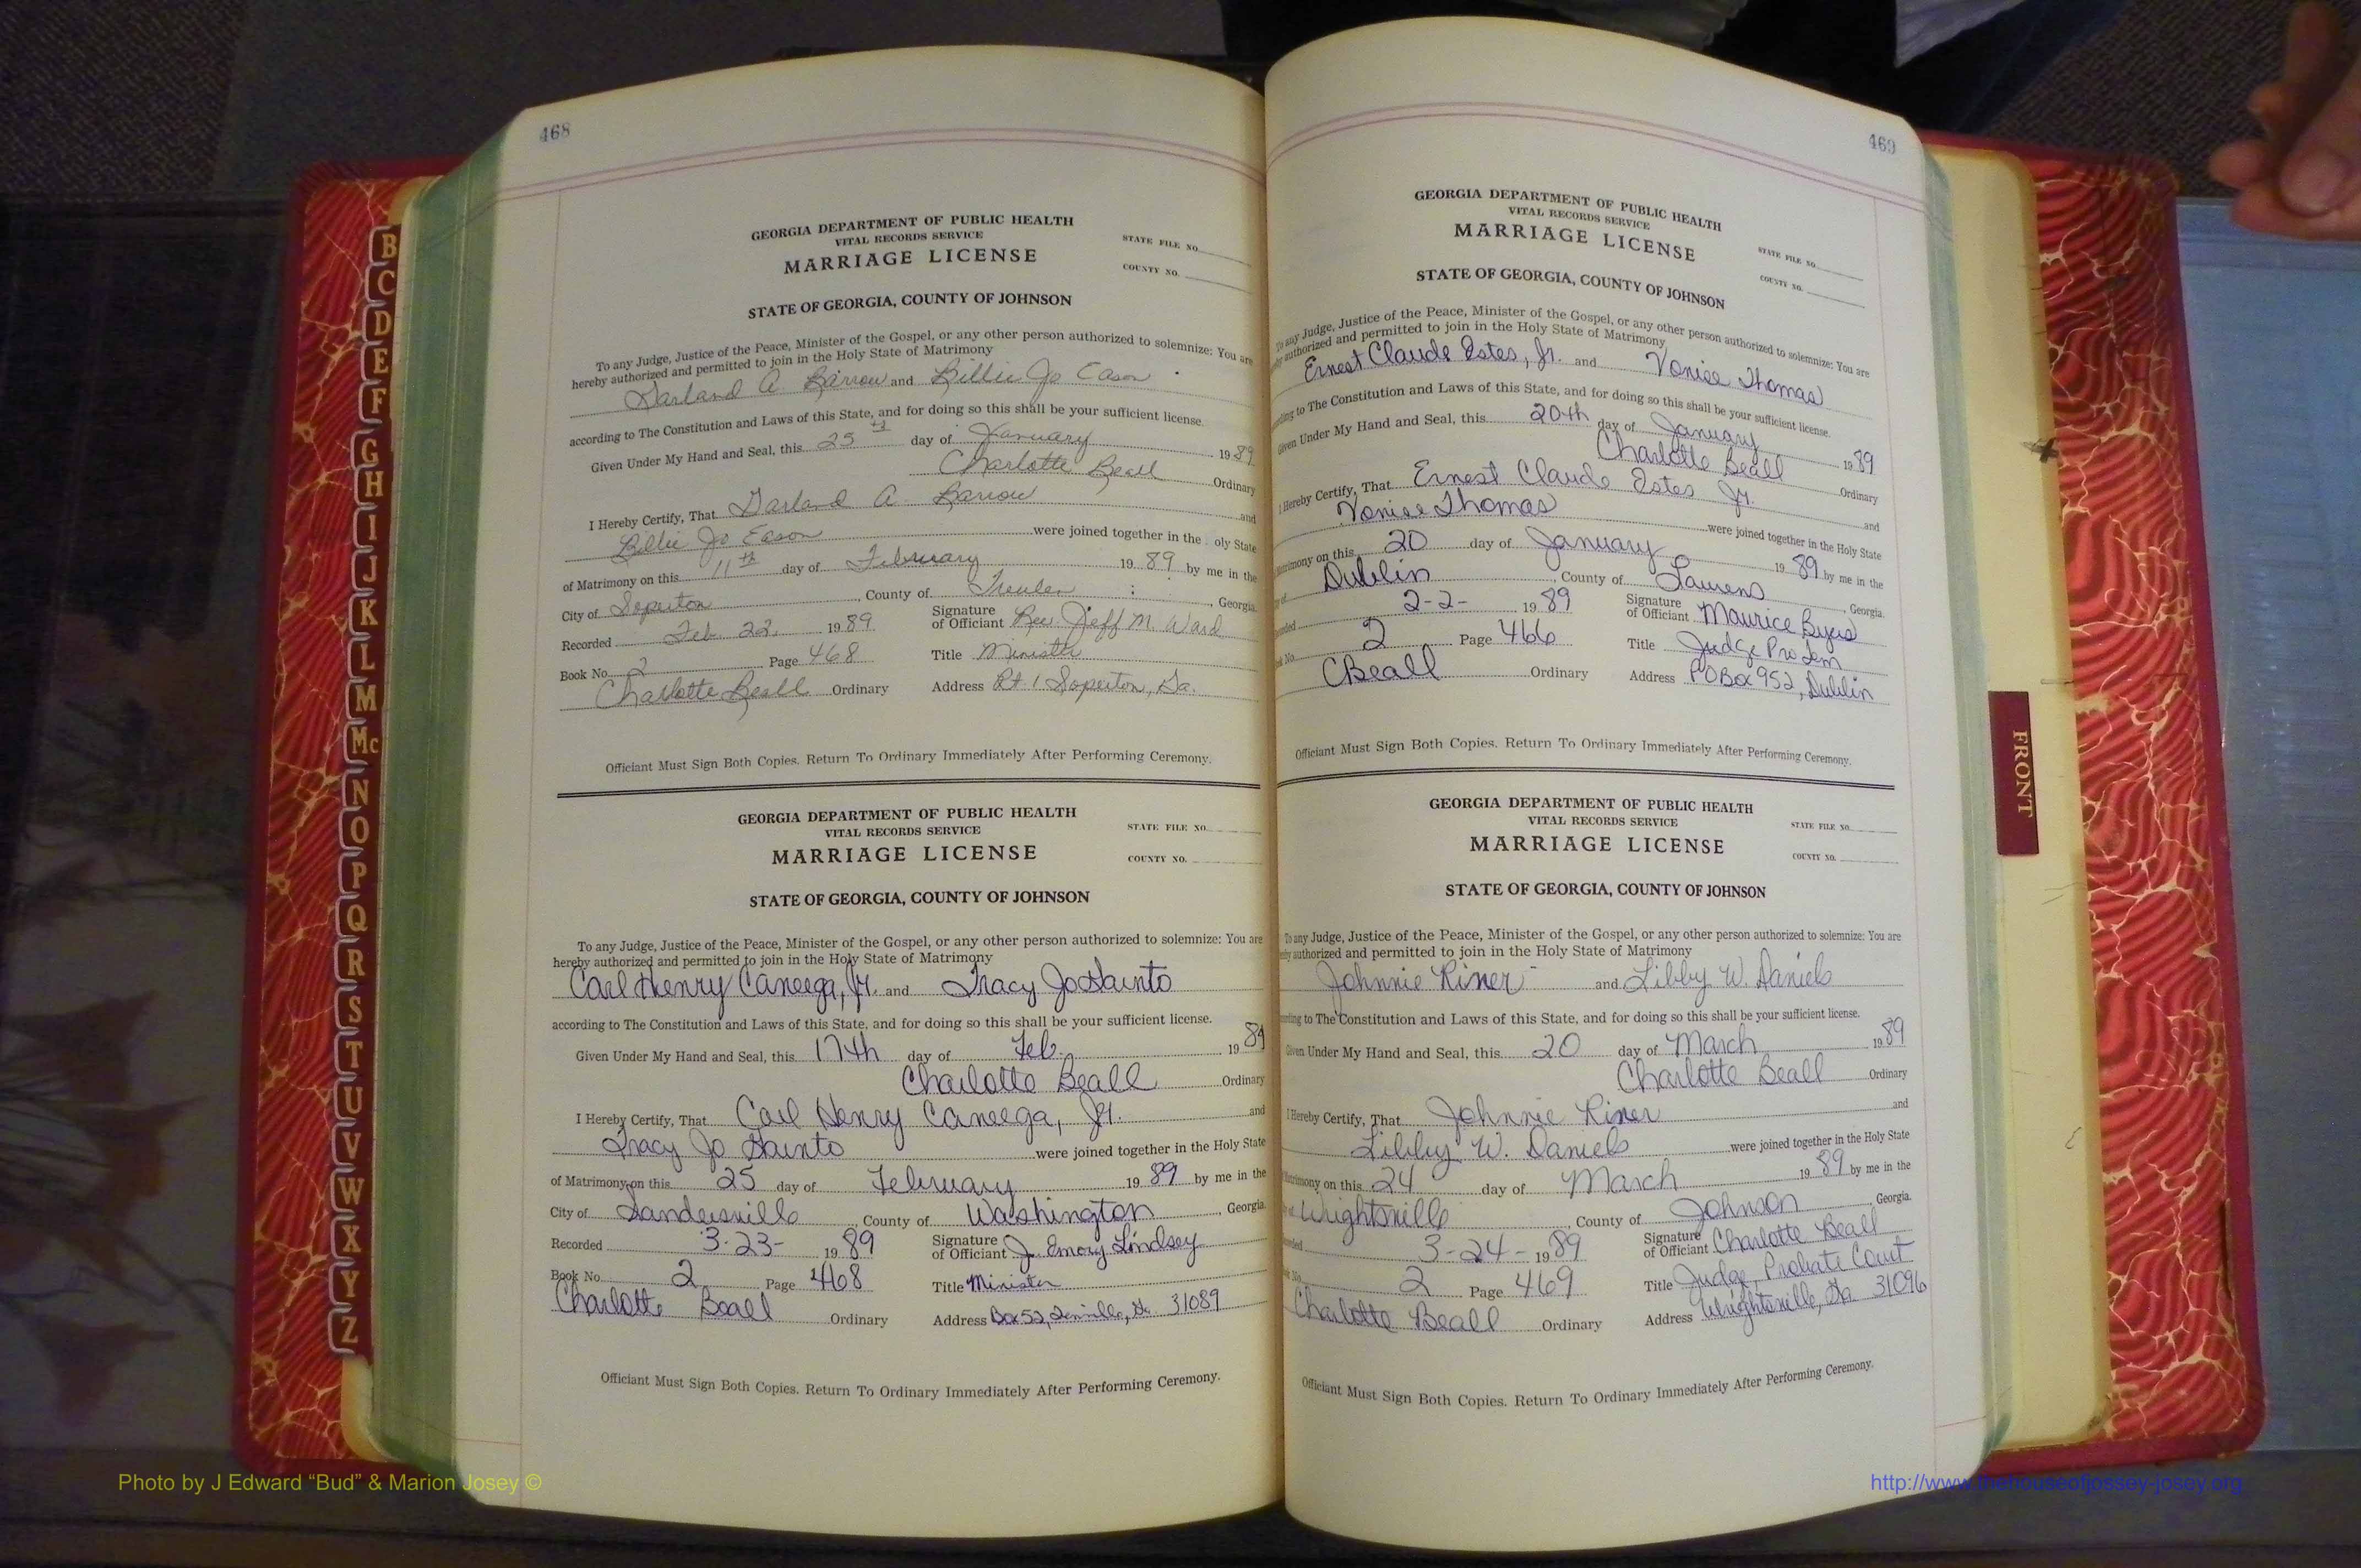 468
GEORGIA DEPARTMENT OF PUBLIC HEALTH
VITAL RECORDS SERVICE
MARRIAGE LICENSE
STATE FILE NO.
COUNTY NO.
STATE OF GEORGIA, COUNTY OF JOHNSON
To any Judge, Justice of the Peace, Minister of the Gospel, or any other person authorized to solemnize: You are
hereby authorized and permitted to join in the Holy State of Matrimony
A. Barrow and Billie Jo Eason
according to The Constitution and Laws of this State, and for doing so this shall be your sufficient license.
Given Under My Hand and Seal, this 25th day of January 1989
Charlotte Beall Ordinary
I Hereby Certify, That A. Barrow and
Billie Jo Eason were joined together in the oly State
of Matrimony on this 11th day of February 1989 by me in the
City of Soperton, County of Treutlen, Georgia
Recorded Feb. 22, 1989 Signature of Officiant Rev. Jeff M. Ward
Book No. 2 Page 468 Title Minister
Charlotte Beall Ordinary Address Rt. 1 Soperton, Ga.
Officiant Must Sign Both Copies. Return To Ordinary Immediately After Performing Ceremony.
GEORGIA DEPARTMENT OF PUBLIC HEALTH
VITAL RECORDS SERVICE
MARRIAGE LICENSE
STATE FILE NO.
COUNTY NO.
STATE OF GEORGIA, COUNTY OF JOHNSON
To any Judge, Justice of the Peace, Minister of the Gospel, or any other person authorized to solemnize: You are
hereby authorized and permitted to join in the Holy State of Matrimony
Carl Henry Caneega, Jr. and Tracy Jo Sainto
according to The Constitution and Laws of this State, and for doing so this shall be your sufficient license.
Given Under My Hand and Seal, this 17th day of Feb. 1989
Charlotte Beall Ordinary
I Hereby Certify, That Carl Henry Caneega, Jr. and
Tracy Jo Sainto were joined together in the Holy State
of Matrimony on this 25 day of February 1989 by me in the
City of Sandersville, County of Washington, Georgia
Recorded 3-23- 1989 Signature of Officiant J. Emory Lindsey
Book No. 2 Page 468 Title Minister
Charlotte Beall Ordinary Address Box 52, Tennille, Ga 31089
Officiant Must Sign Both Copies. Return To Ordinary Immediately After Performing Ceremony.
469
GEORGIA DEPARTMENT OF PUBLIC HEALTH
VITAL RECORDS SERVICE
MARRIAGE LICENSE
STATE FILE NO.
COUNTY NO.
STATE OF GEORGIA, COUNTY OF JOHNSON
To any Judge, Justice of the Peace, Minister of the Gospel, or any other person authorized to solemnize: You are
authorized and permitted to join in the Holy State of Matrimony
Ernest Claude Estes, Jr. and Vonise Thomas
to The Constitution and Laws of this State, and for doing so this shall be your sufficient license.
Given Under My Hand and Seal, this 20th day of January 1989
Charlotte Beall Ordinary
I Hereby Certify, That Ernest Claude Estes Jr. and
Vonise Thomas were joined together in the Holy State
on this 20 day of January 1989 by me in the
Dublin, County of Laurens, Georgia
2-2- 1989 Signature of Officiant Maurice Byers
2 Page 466 Title Judge Pro Tem
CBeall Ordinary Address PO Box 952, Dublin
Officiant Must Sign Both Copies. Return To Ordinary Immediately After Performing Ceremony.
GEORGIA DEPARTMENT OF PUBLIC HEALTH
VITAL RECORDS SERVICE
MARRIAGE LICENSE
STATE FILE NO.
COUNTY NO.
STATE OF GEORGIA, COUNTY OF JOHNSON
To any Judge, Justice of the Peace, Minister of the Gospel, or any other person authorized to solemnize: You are
authorized and permitted to join in the Holy State of Matrimony
Johnnie Riner and Libby W. Daniels
to The Constitution and Laws of this State, and for doing so this shall be your sufficient license.
Given Under My Hand and Seal, this 20 day of March 1989
Charlotte Beall Ordinary
I Hereby Certify, That Johnnie Riner and
Libby W. Daniels were joined together in the Holy State
on this 24 day of March 1989 by me in the
Wrightsville, County of Johnson, Georgia.
3-24- 1989 Signature of Officiant Charlotte Beall
2 Page 469 Title Judge, Probate Court
Charlotte Beall Ordinary Address Wrightsville, Ga 31096
Officiant Must Sign Both Copies. Return To Ordinary Immediately After Performing Ceremony.
B
C
D
E
F
G
H
I
J
K
L
M
Mc
N
O
P
Q
R
S
T
U
V
W
X
Y
Z
FRONT
Photo by J Edward “Bud” & Marion Josey ©
http://www.thehouseofjossey-josey.org